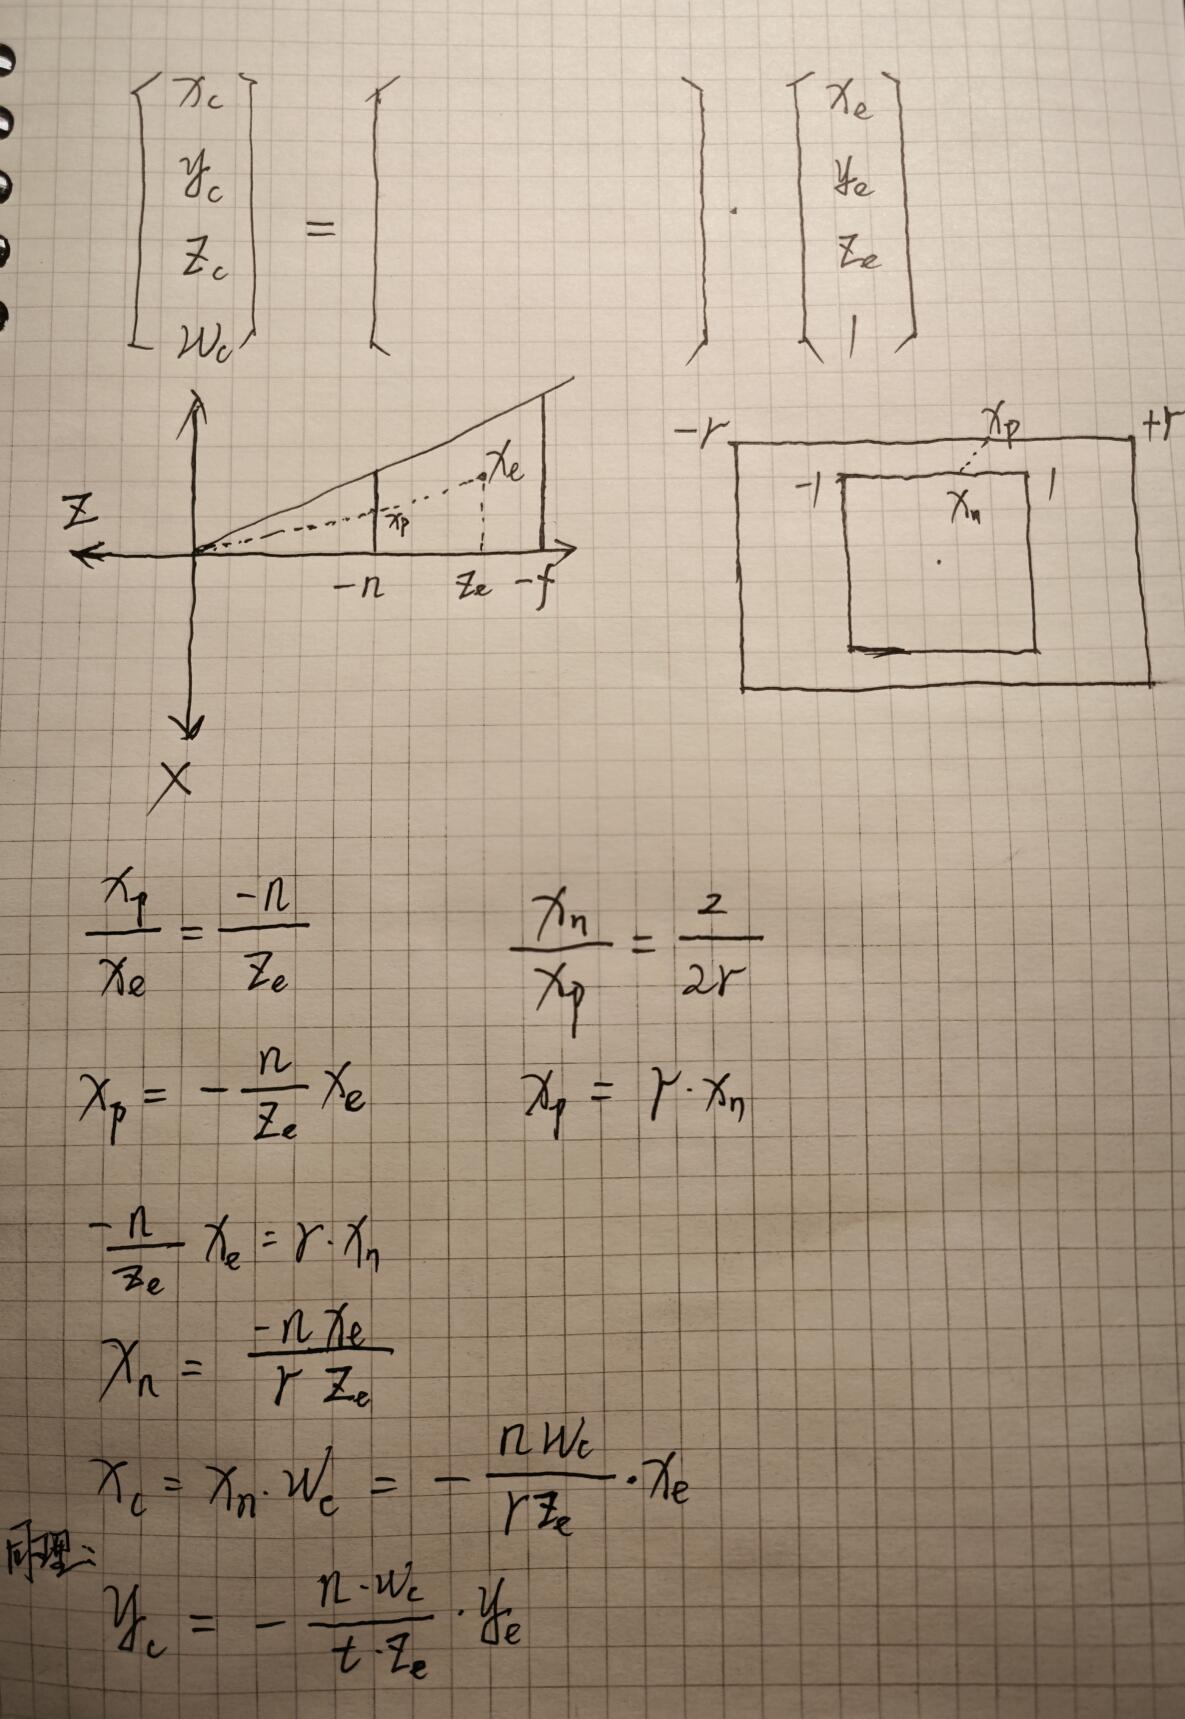 [x_c y_c z_c w_c] = [ ] · [x_e y_e z_e 1]
Z
X
x_p
x_e
-n
z_e
-f
-r
x_p
+r
-1
x_n
1
x_p/x_e = -n/z_e
x_n/x_p = 2/2r
x_p = -n/z_e x_e
x_p = r·x_n
-n/z_e x_e = r·x_n
x_n = -n x_e/r z_e
x_c = x_n·w_c = -n w_c/r z_e·x_e
同理:
y_c = -n·w_c/t·z_e·y_e